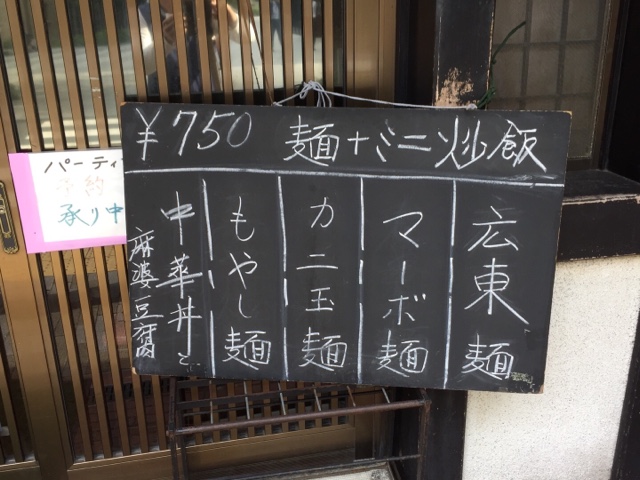 ¥750 麺+ミニ炒飯
広東麺
マーボ麺
カニ玉麺
もやし麺
中華丼と
麻婆豆腐
パーティ
予約
承り中